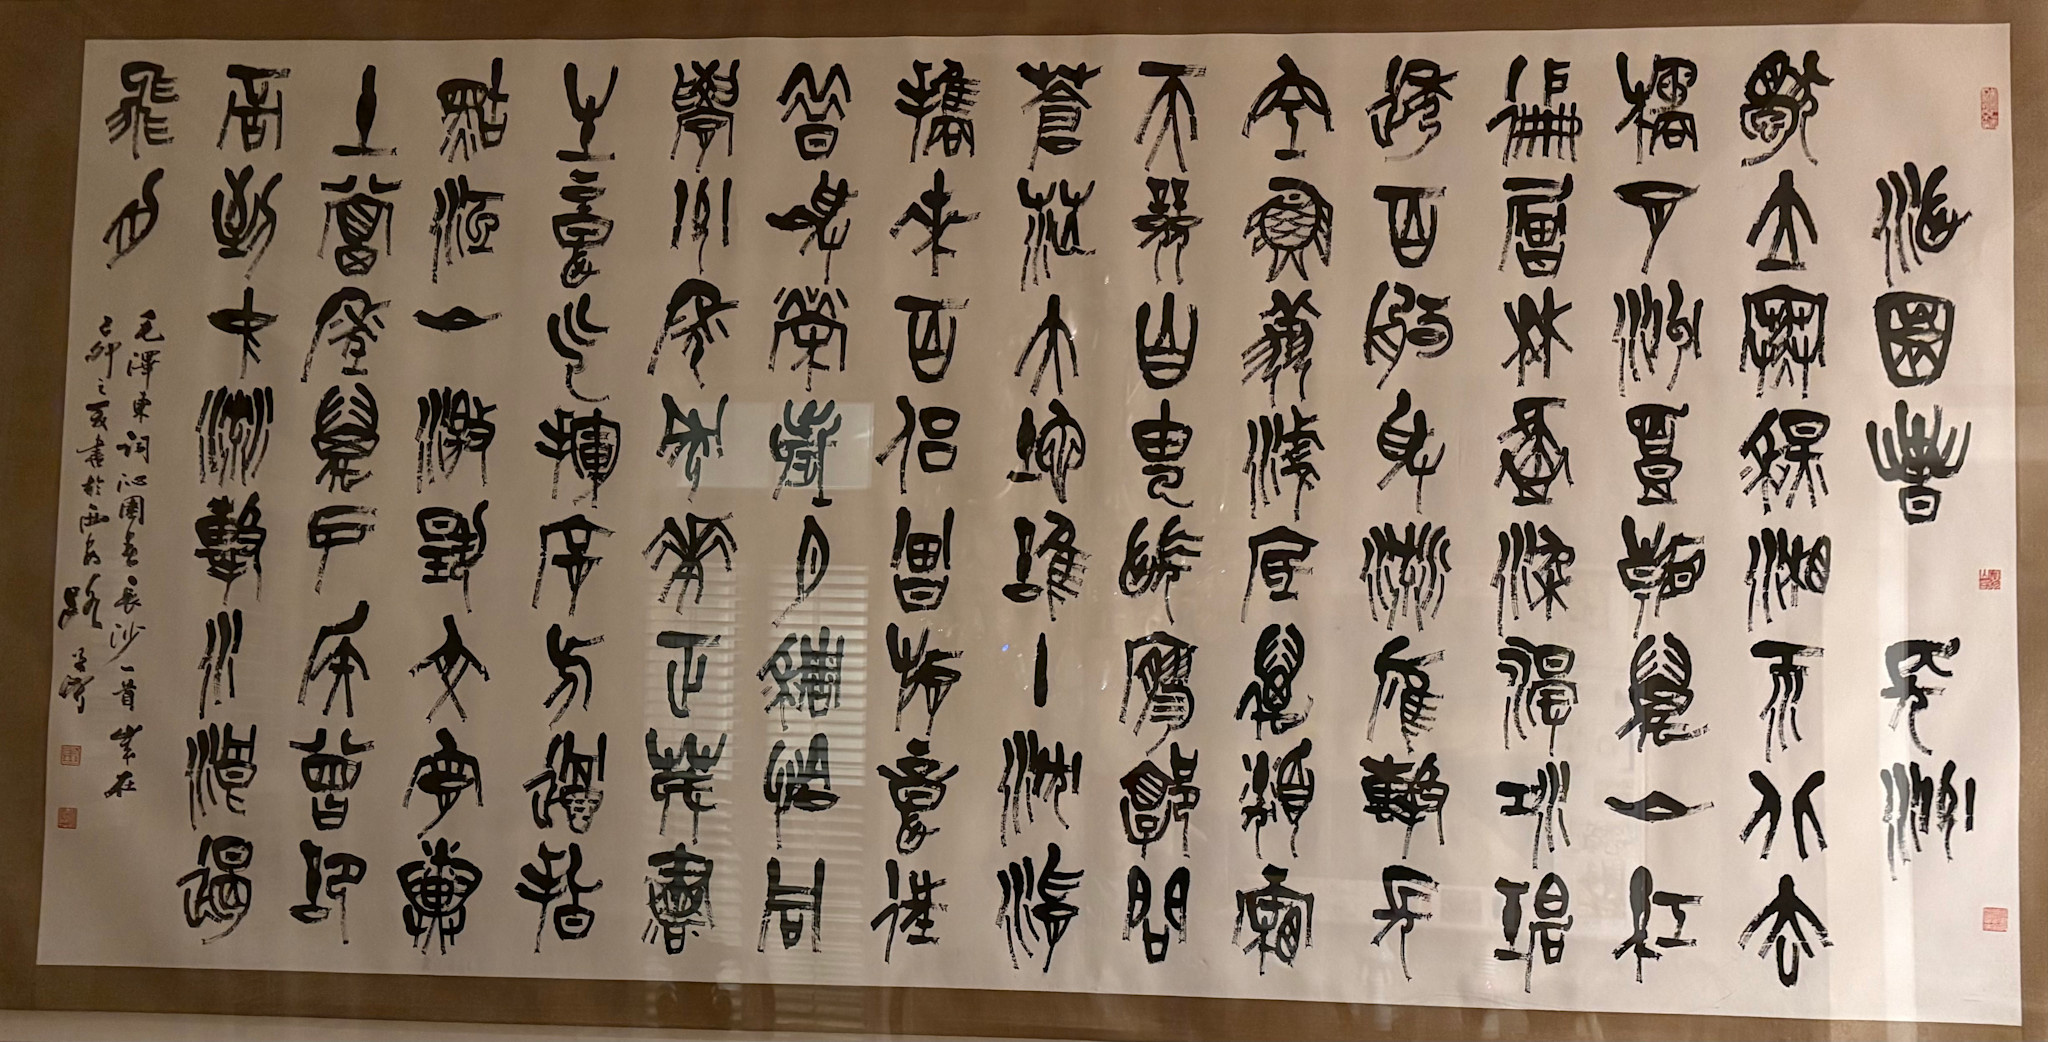 沁園春 長沙
獨立寒秋湘江北去
橘子洲頭看萬山紅
遍層林盡染漫江碧
透百舸爭流鷹擊長
空魚翔淺底萬類霜
天競自由悵寥廓問
蒼茫大地誰主沉浮
攜來百侶曾遊憶往
昔崢嶸歲月稠恰同
學少年風華正茂書
生意氣揮斥方遒指
點江山激揚文字糞
土當年萬戶侯曾記
否到中流擊水浪遏
飛舟
毛澤東詞沁園春長沙一首歲在
己卯之夏書於西安